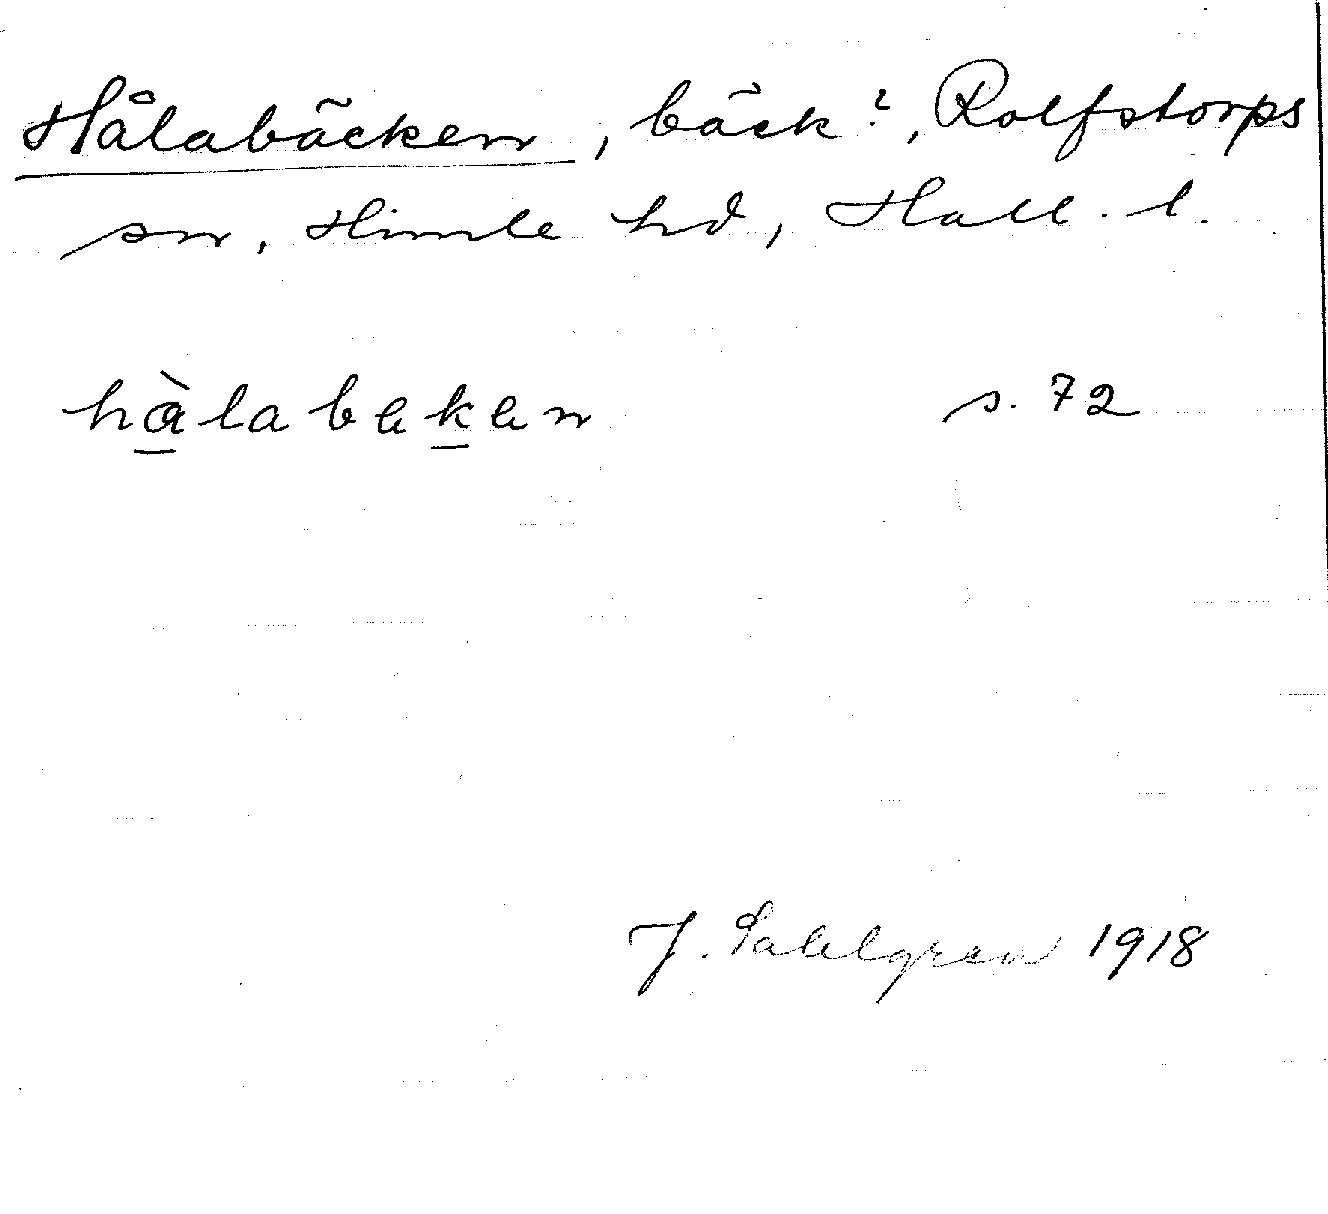 Hålabäcken, bäck?, Rolfstorps
sn, Himle hd, Hall. l.
hàlabeken s. 72
J. Sahlgren 1918